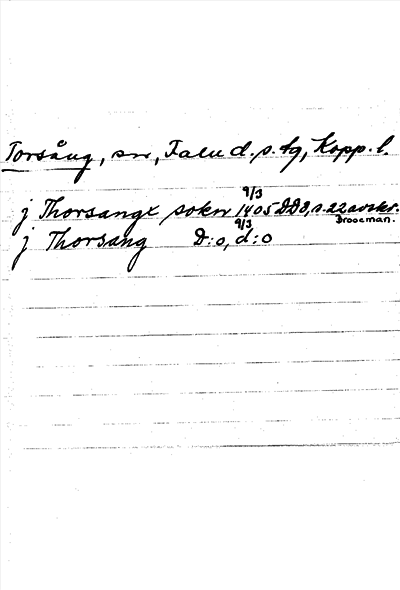 Torsång, sn, Falu d. s. tg, Kopp. l.
9/3
j Thorsangx sokn 1405 DD8, s. 22 avskr.
9/3 Broocman.
j Thorsang D:o, d:o